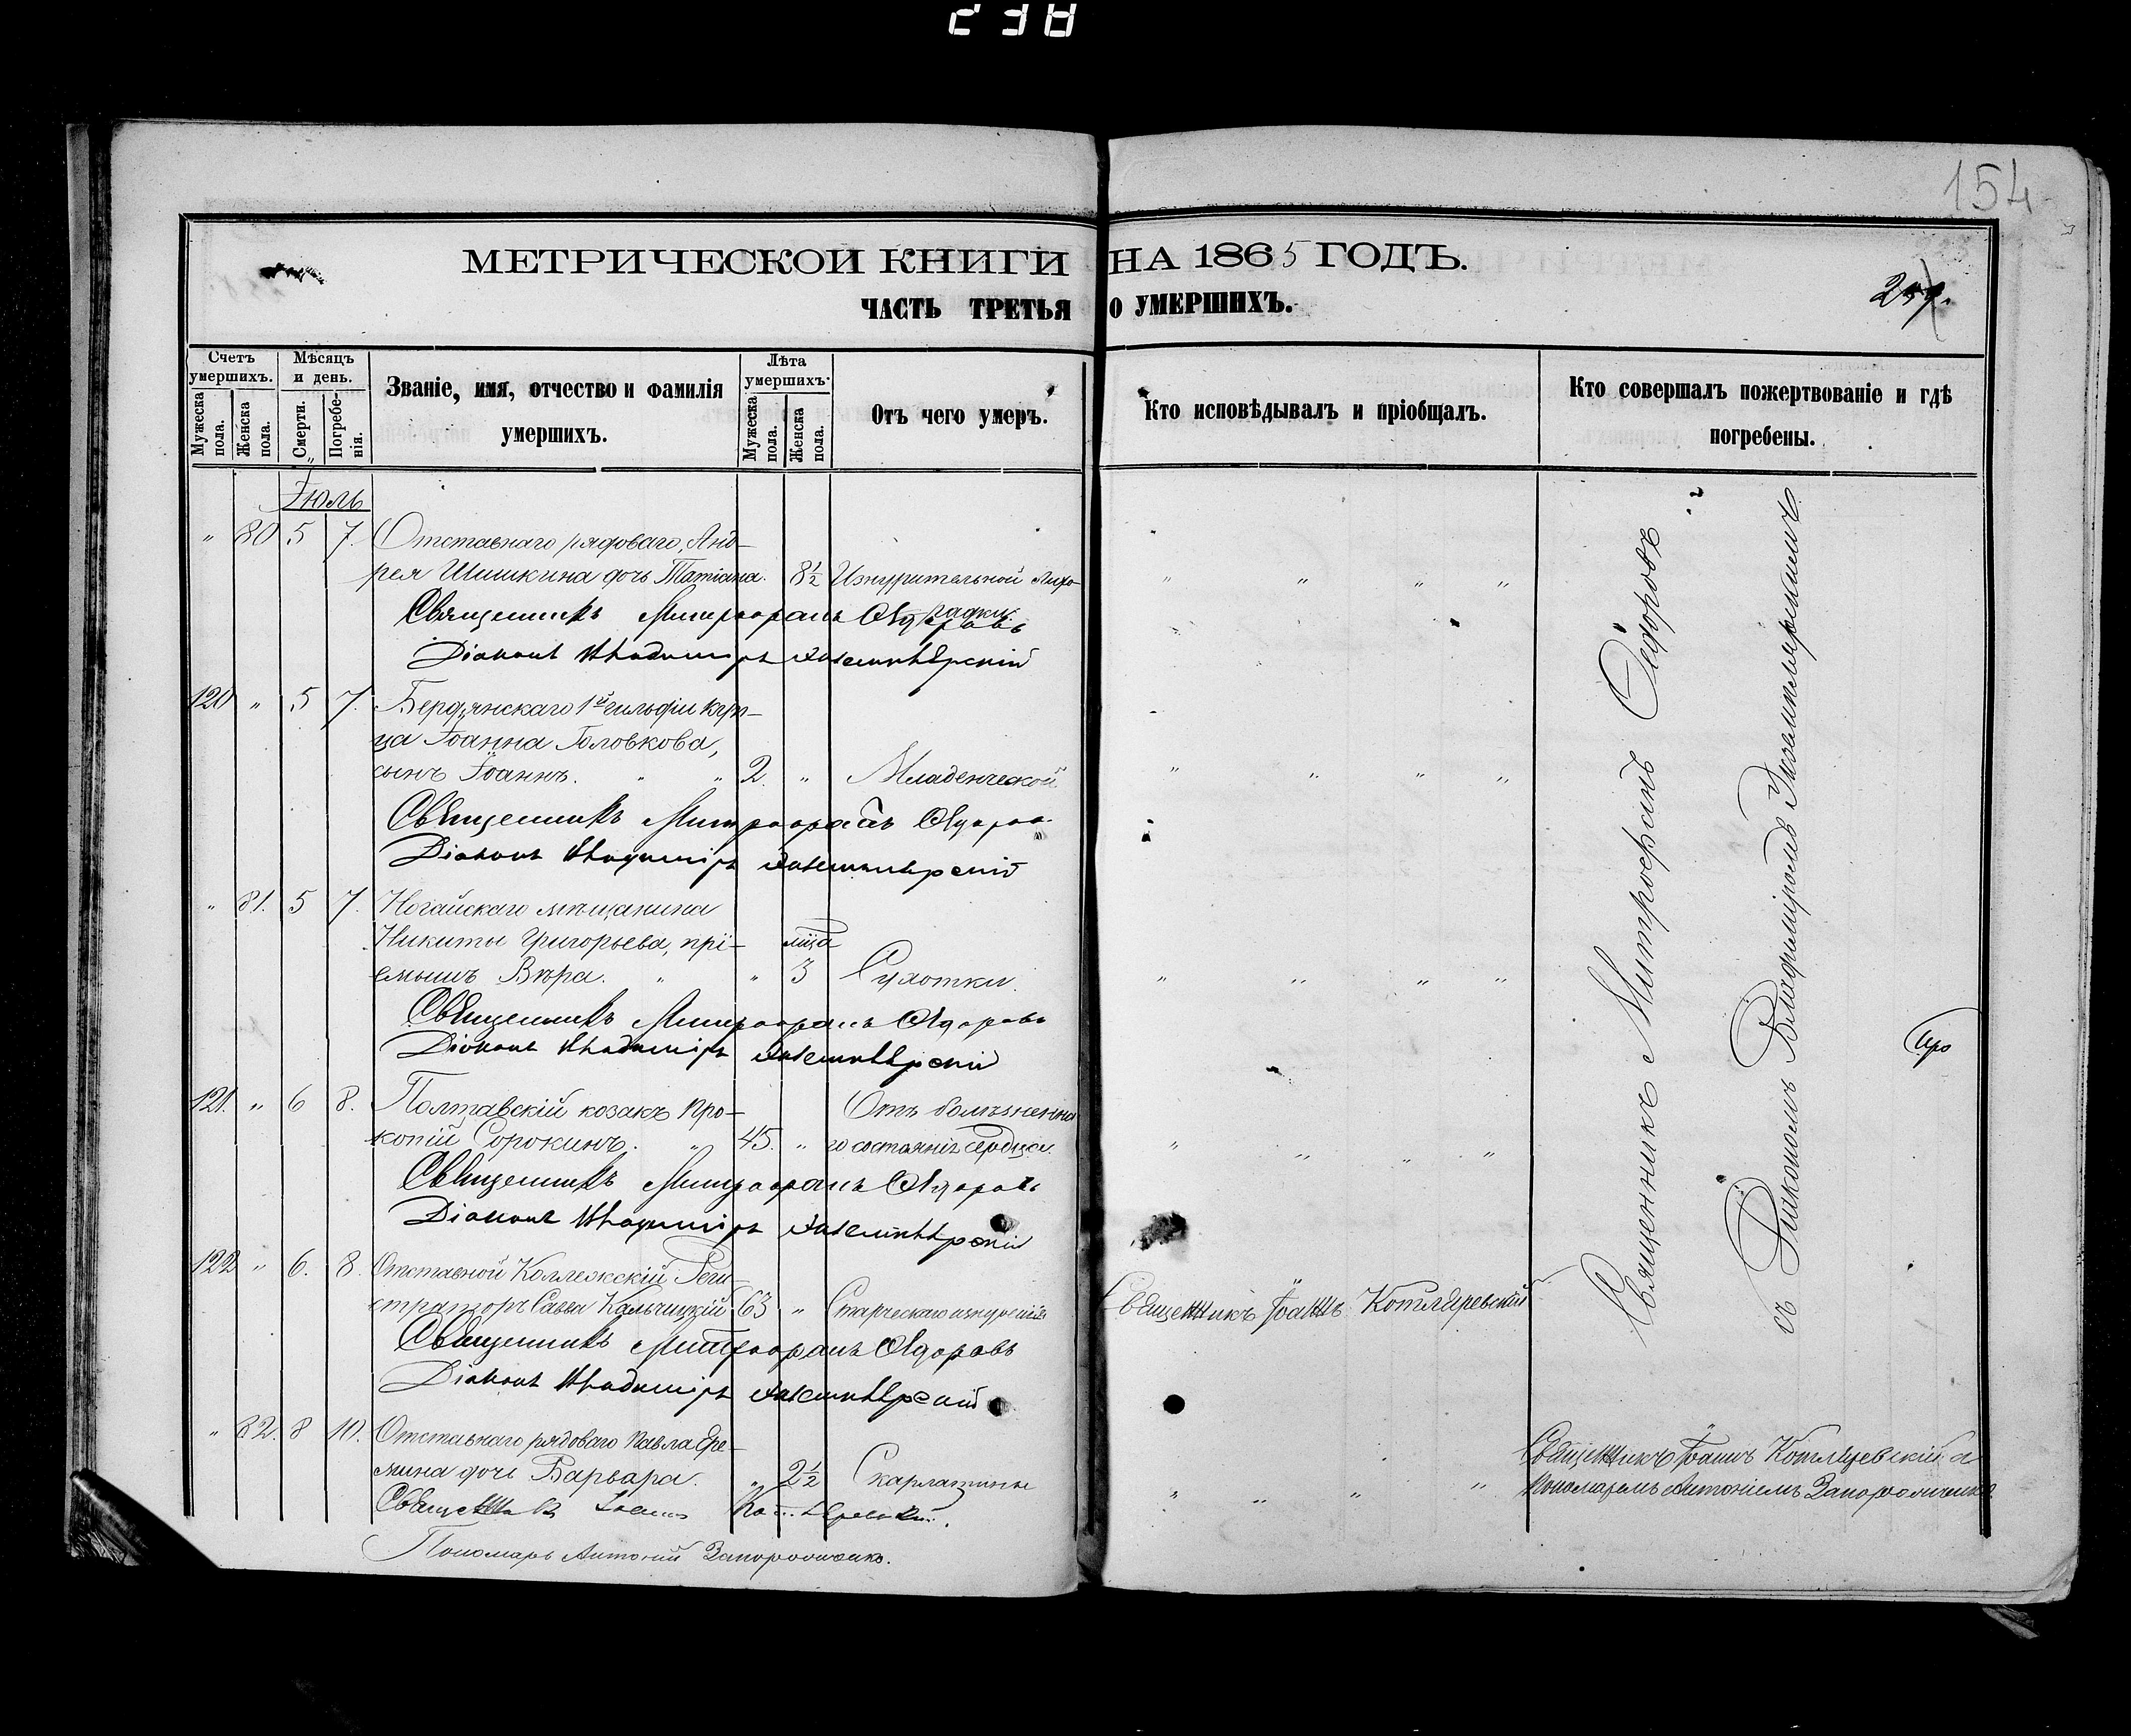 238
154
МЕТРИЧЕСКОЙ КНИГИ НА 1865 ГОДЪ.
ЧАСТЬ ТРЕТЬЯ О УМЕРШИХЪ.
Счетъ умершихъ.
Мужеска пола.
Женска пола.
Мѣсяцъ и день.
Смерти.
Погребенія.
Званіе, имя, отчество и фамилія
умершихъ.
Лѣта умершихъ.
Мужеска пола.
Женска пола.
Отъ чего умеръ.
Кто исповѣдывалъ и пріобщалъ.
Кто совершалъ пожертвованіе и гдѣ
погребены.
Іюль
" 80 5 7. Отставнаго рядоваго, Анд-
рея Шишкина дочь Татіана. 8½ Изнурительной лихо-
радки.
Священникъ Митрофанъ Сѣдоровъ
Діаконъ Владиміръ Экземплярскій
120 " 5 7. Бердянскаго 1й гильдіи куп-
ца Іоанна Головкова,
сынъ Іоаннъ. " " 2. " Младенческой
Священникъ Митрофанъ
Діаконъ Владиміръ Экземплярскій
" 81. 5 7. Ногайскаго мѣщанина
Никиты Григорьева, прі- мѣца
емышъ Вѣра. " " 3 Сухотки.
Священникъ Митрофанъ Сѣдоровъ
Діаконъ Владиміръ Экземплярскій
121. " 6 8. Полтавскій козакъ Про- Отъ болѣзненна-
копій Сорокинъ. " 45. " го состоянія сердца.
Священникъ Митрофанъ Сѣдоровъ
Діаконъ Владиміръ Экземплярскій
122 " 6. 8. Отставной Коллежскій Реги-
страторъ Савва Кальчицкій 63 " Старческаго изнуренія Священникъ Іоаннъ Котляревскій
Священникъ Митрофанъ Сѣдоровъ
Діаконъ Владиміръ Экземплярскій
" 82. 8 10. Отставнаго рядоваго Павла Ере-
мина дочь Варвара. " 2½ Скарлатины
Священникъ Іоаннъ Котляревскій.
Пономарь Антоній
Священникъ Митрофанъ Сѣдоровъ
съ Діакономъ Владиміромъ Экземплярскимъ
Священникъ Іоаннъ Котляревскій съ
Пономаремъ Антоніемъ